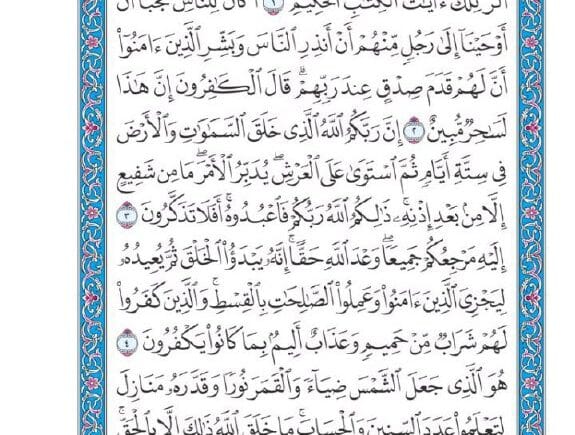 الٓر تِلْكَ ءَايَٰتُ ٱلْكِتَٰبِ ٱلْحَكِيمِ ١ أَكَانَ لِلنَّاسِ عَجَبًا أَنْ
أَوْحَيْنَآ إِلَىٰ رَجُلٍ مِّنْهُمْ أَنْ أَنذِرِ ٱلنَّاسَ وَبَشِّرِ ٱلَّذِينَ ءَامَنُوٓا۟
أَنَّ لَهُمْ قَدَمَ صِدْقٍ عِندَ رَبِّهِمْ ۗ قَالَ ٱلْكَٰفِرُونَ إِنَّ هَٰذَا
لَسَٰحِرٌ مُّبِينٌ ٢ إِنَّ رَبَّكُمُ ٱللَّهُ ٱلَّذِى خَلَقَ ٱلسَّمَٰوَٰتِ وَٱلْأَرْضَ
فِى سِتَّةِ أَيَّامٍ ثُمَّ ٱسْتَوَىٰ عَلَى ٱلْعَرْشِ ۖ يُدَبِّرُ ٱلْأَمْرَ ۖ مَا مِن شَفِيعٍ
إِلَّا مِنۢ بَعْدِ إِذْنِهِۦ ۚ ذَٰلِكُمُ ٱللَّهُ رَبُّكُمْ فَٱعْبُدُوهُ ۚ أَفَلَا تَذَكَّرُونَ ٣
إِلَيْهِ مَرْجِعُكُمْ جَمِيعًا ۖ وَعْدَ ٱللَّهِ حَقًّا ۚ إِنَّهُۥ يَبْدَؤُا۟ ٱلْخَلْقَ ثُمَّ يُعِيدُهُۥ
لِيَجْزِىَ ٱلَّذِينَ ءَامَنُوا۟ وَعَمِلُوا۟ ٱلصَّٰلِحَٰتِ بِٱلْقِسْطِ ۚ وَٱلَّذِينَ كَفَرُوا۟
لَهُمْ شَرَابٌ مِّنْ حَمِيمٍ وَعَذَابٌ أَلِيمٌۢ بِمَا كَانُوا۟ يَكْفُرُونَ ٤
هُوَ ٱلَّذِى جَعَلَ ٱلشَّمْسَ ضِيَآءً وَٱلْقَمَرَ نُورًا وَقَدَّرَهُۥ مَنَازِلَ
لِتَعْلَمُوا۟ عَدَدَ ٱلسِّنِينَ وَٱلْحِسَابَ ۚ مَا خَلَقَ ٱللَّهُ ذَٰلِكَ إِلَّا بِٱلْحَقِّ ۚ